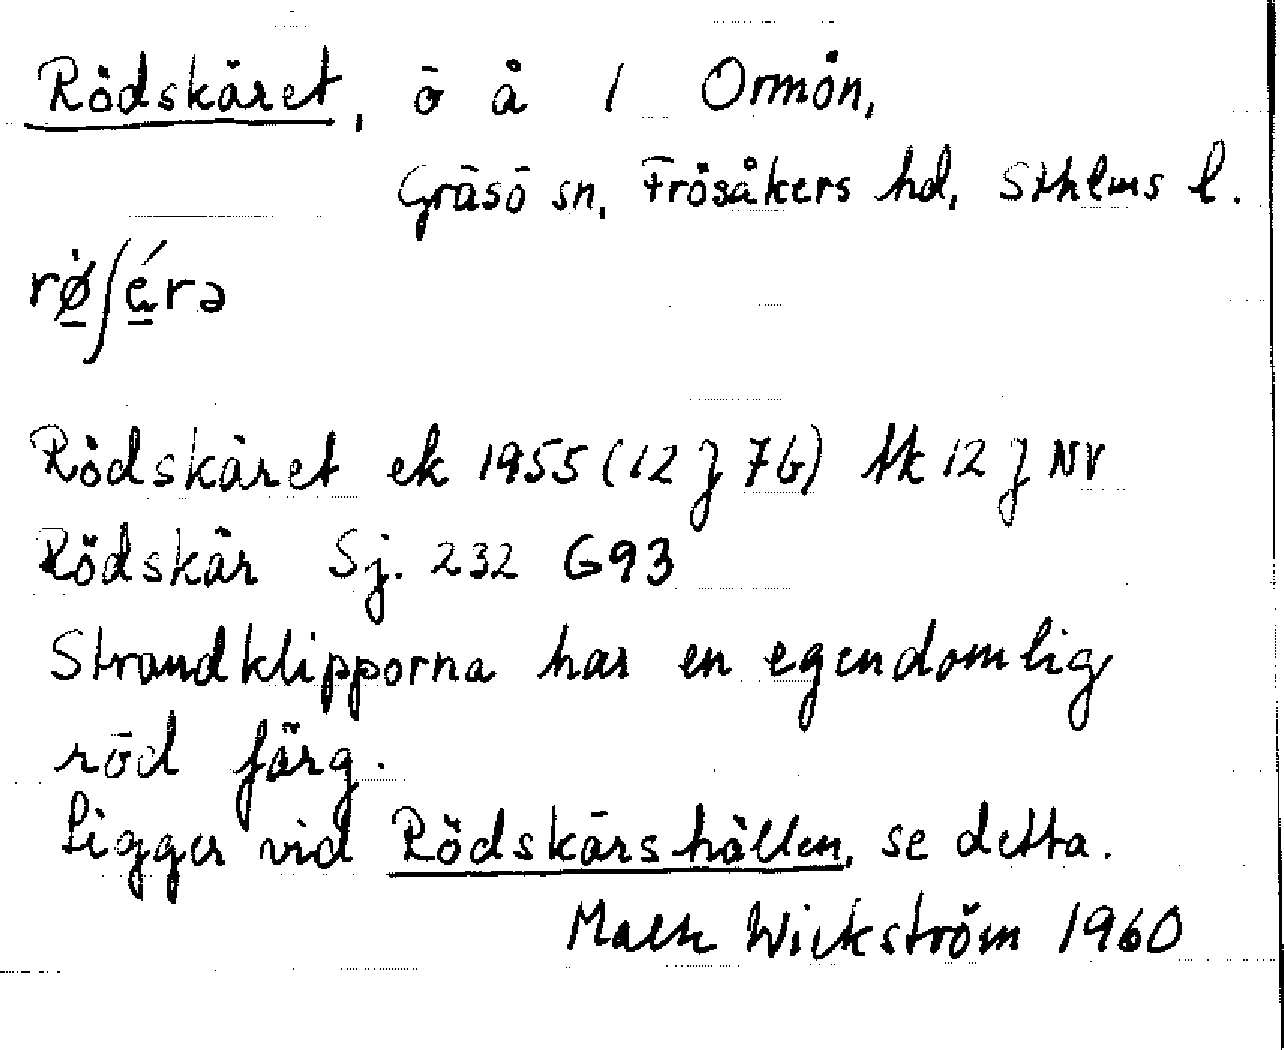 Rödskäret, ö å 1 Ormön,
Gräsö sn, Frösåkers hd, Sthlms l.
rø̀ʃérə
Rödskäret ek 1955 (12 J 7b) tk 12 J NV
Rödskär Sj. 232 G93
Strandklipporna har en egendomlig
röd färg.
Ligger vid Rödskärshällen, se detta.
Wickström 1960